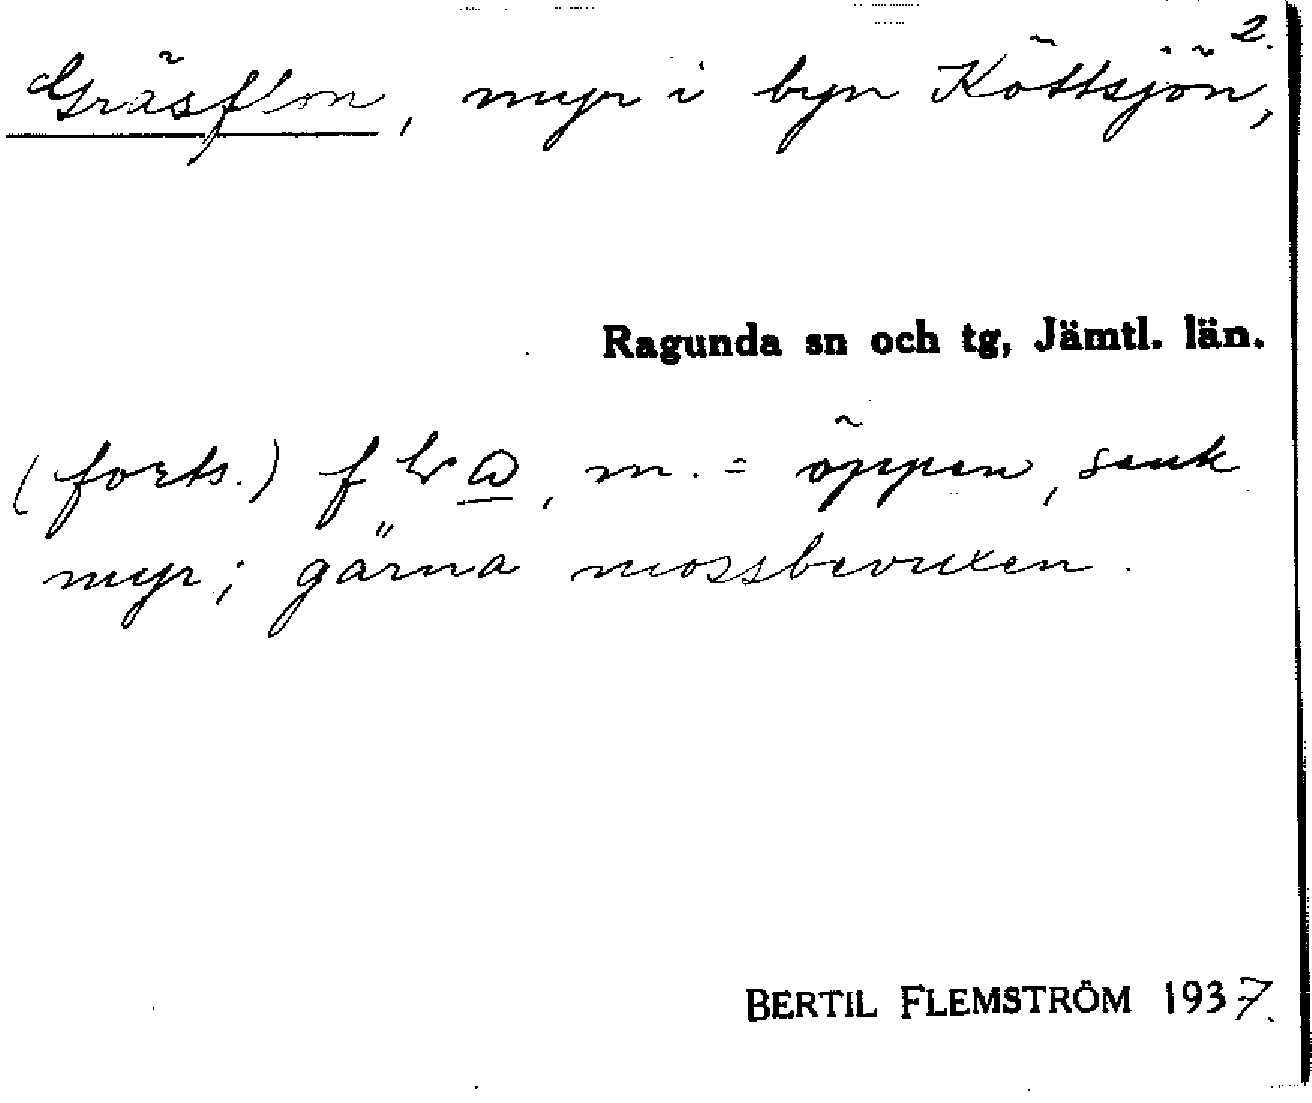 2.
Gräsflon, myr i byn Köttsjön,
Ragunda sn och tg, Jämtl. län.
(forts.) m. = öppen, sank
myr; gärna mossbevuxen.
BERTIL FLEMSTRÖM 1937.